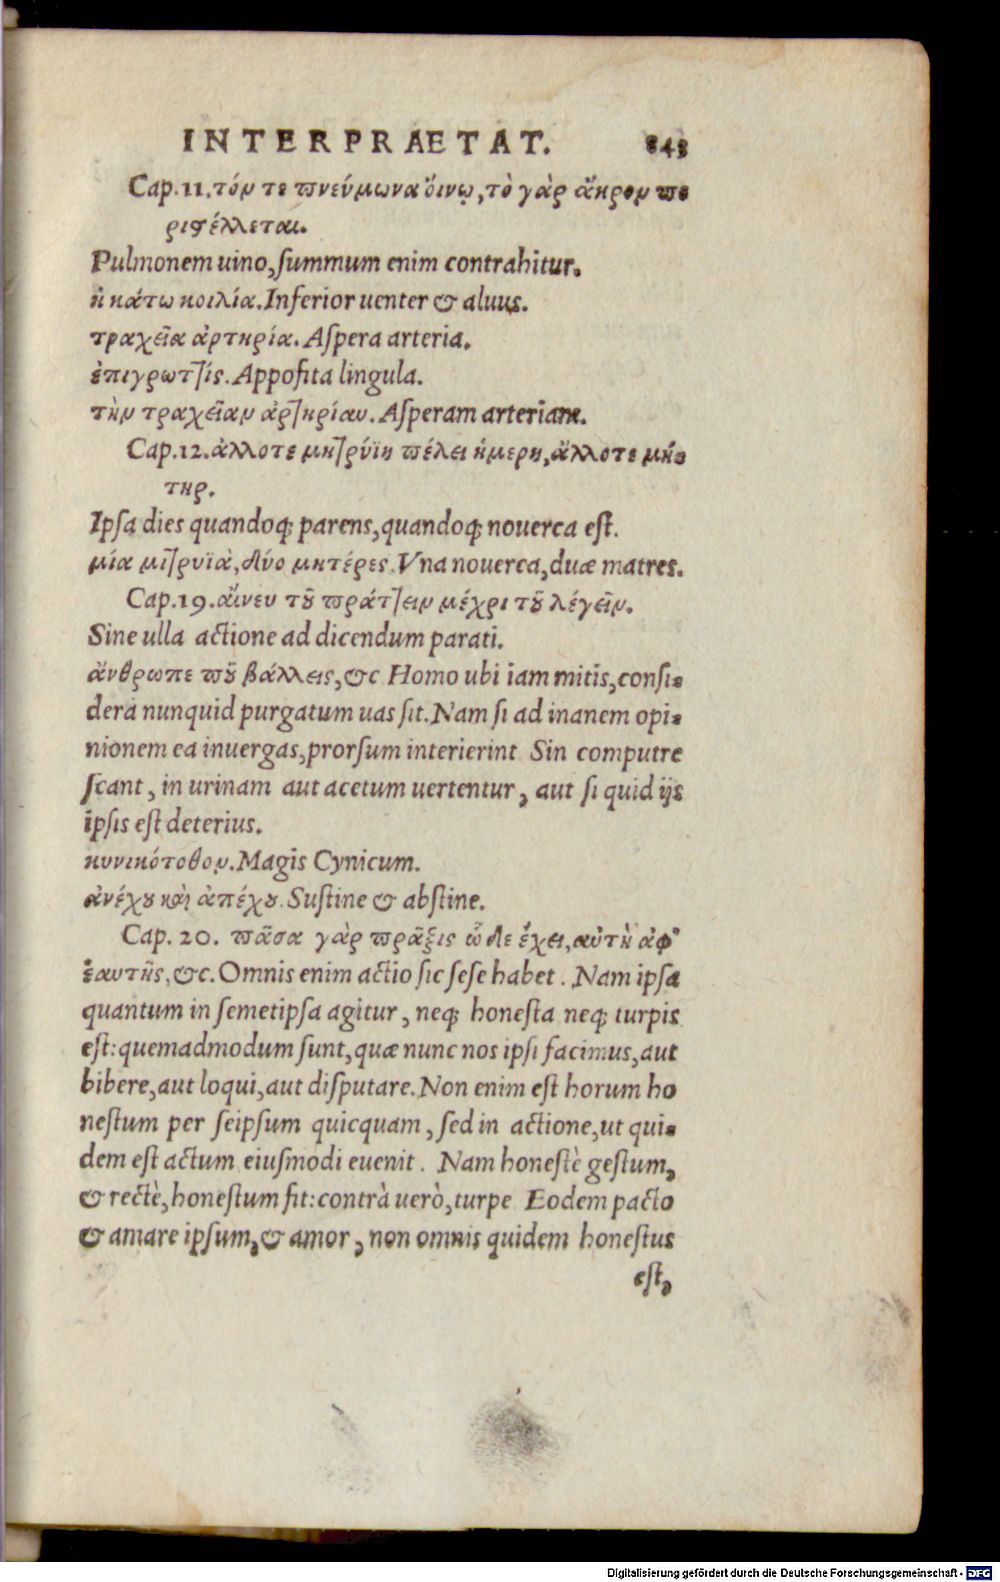 INTERPRAETAT. 843
Cap.11.τόν τε πνεύμωνα ὄινῳ,τὸ γὰρ ἄκρον πε
ριϛέλλεται.
Pulmonem uino,summum enim contrahitur.
ἡ κάτω κοιλία.Inferior uenter & aluus.
τραχεῖα ἀρτηρία. Aſpera arteria.
ἐπιγρωτ7ίς. Appoſita lingula.
τὴν τραχεῖαν ἀρτηρίαυ. Aſperam arteriam.
Cap.12.ἀλλοτε μητρύϊη πέλει ἡμερη,ἄλλοτε μή-
τηρ.
Ipſa dies quandoq; parens,quandoq; nouerca eſt.
μία μιτρυϊὰ,δύο μητέρες.Vna nouerca,duæ matres.
Cap.19.ἄινευ τȣ͂ πράτ7ειν μέχρι τȣ͂ λέγεῖν.
Sine ulla actione ad dicendum parati.
ἄνθρωπε πȣ͂ βάλλεις,&c Homo ubi iam mitis,conſi-
dera nunquid purgatum uas ſit.Nam ſi ad inanem opi-
nionem ea inuergas,prorſum interierint Sin computre
ſcant, in urinam aut acetum uertentur, aut ſi quid ijs
ipſis eſt deterius.
κυνικότοθον.Magis Cynicum.
ἀνέχȣ καὶ ἀπέχȣ. Suſtine & abſtine.
Cap. 20. πᾶσα γὰρ πρᾶξις ὧδε ἔχει,αὐτὴ ἀφ᾽
ἑαυτῆς,&c.Omnis enim actio ſic ſeſe habet. Nam ipſa
quantum in ſemetipſa agitur, neq; honeſta neq; turpis
eſt:quemadmodum ſunt,quæ nunc nos ipſi facimus,aut
bibere,aut loqui,aut diſputare.Non enim eſt horum ho
neſtum per ſeipſum quicquam, ſed in actione,ut qui-
dem eſt actum eiuſmodi euenit. Nam honeſtè geſtum,
& rectè,honeſtum fit:contrà uerò,turpe Eodem pacto
& amare ipſum,& amor, non omnis quidem honeſtus
eſt,
Digitalisierung gefördert durch die Deutsche Forschungsgemeinschaft - DFG